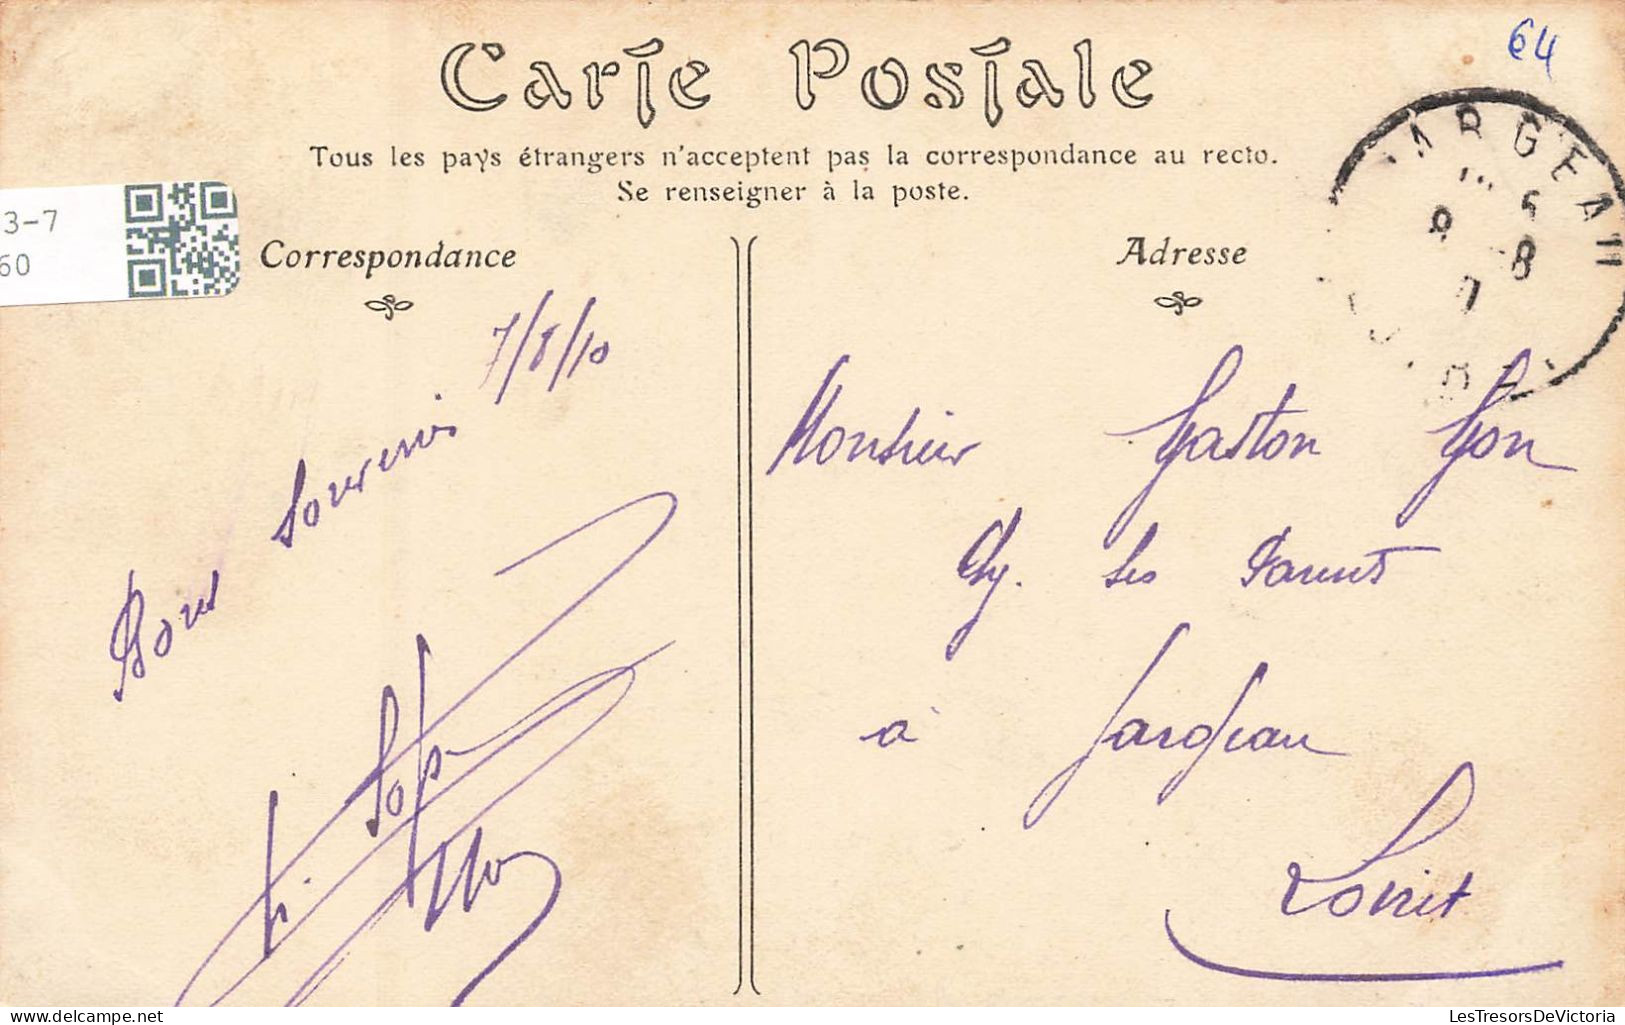 64
Carte Postale
Tous les pays étrangers n'acceptent pas la correspondance au recto.
Se renseigner à la poste.
3-7
60
Correspondance
7/8/10
Bons Souvenirs
Adresse
JARGEAU
8 -8
Monsieur Gaston
chez ses Parents
à Jargeau
Loiret
LesTresorsDeVictoria